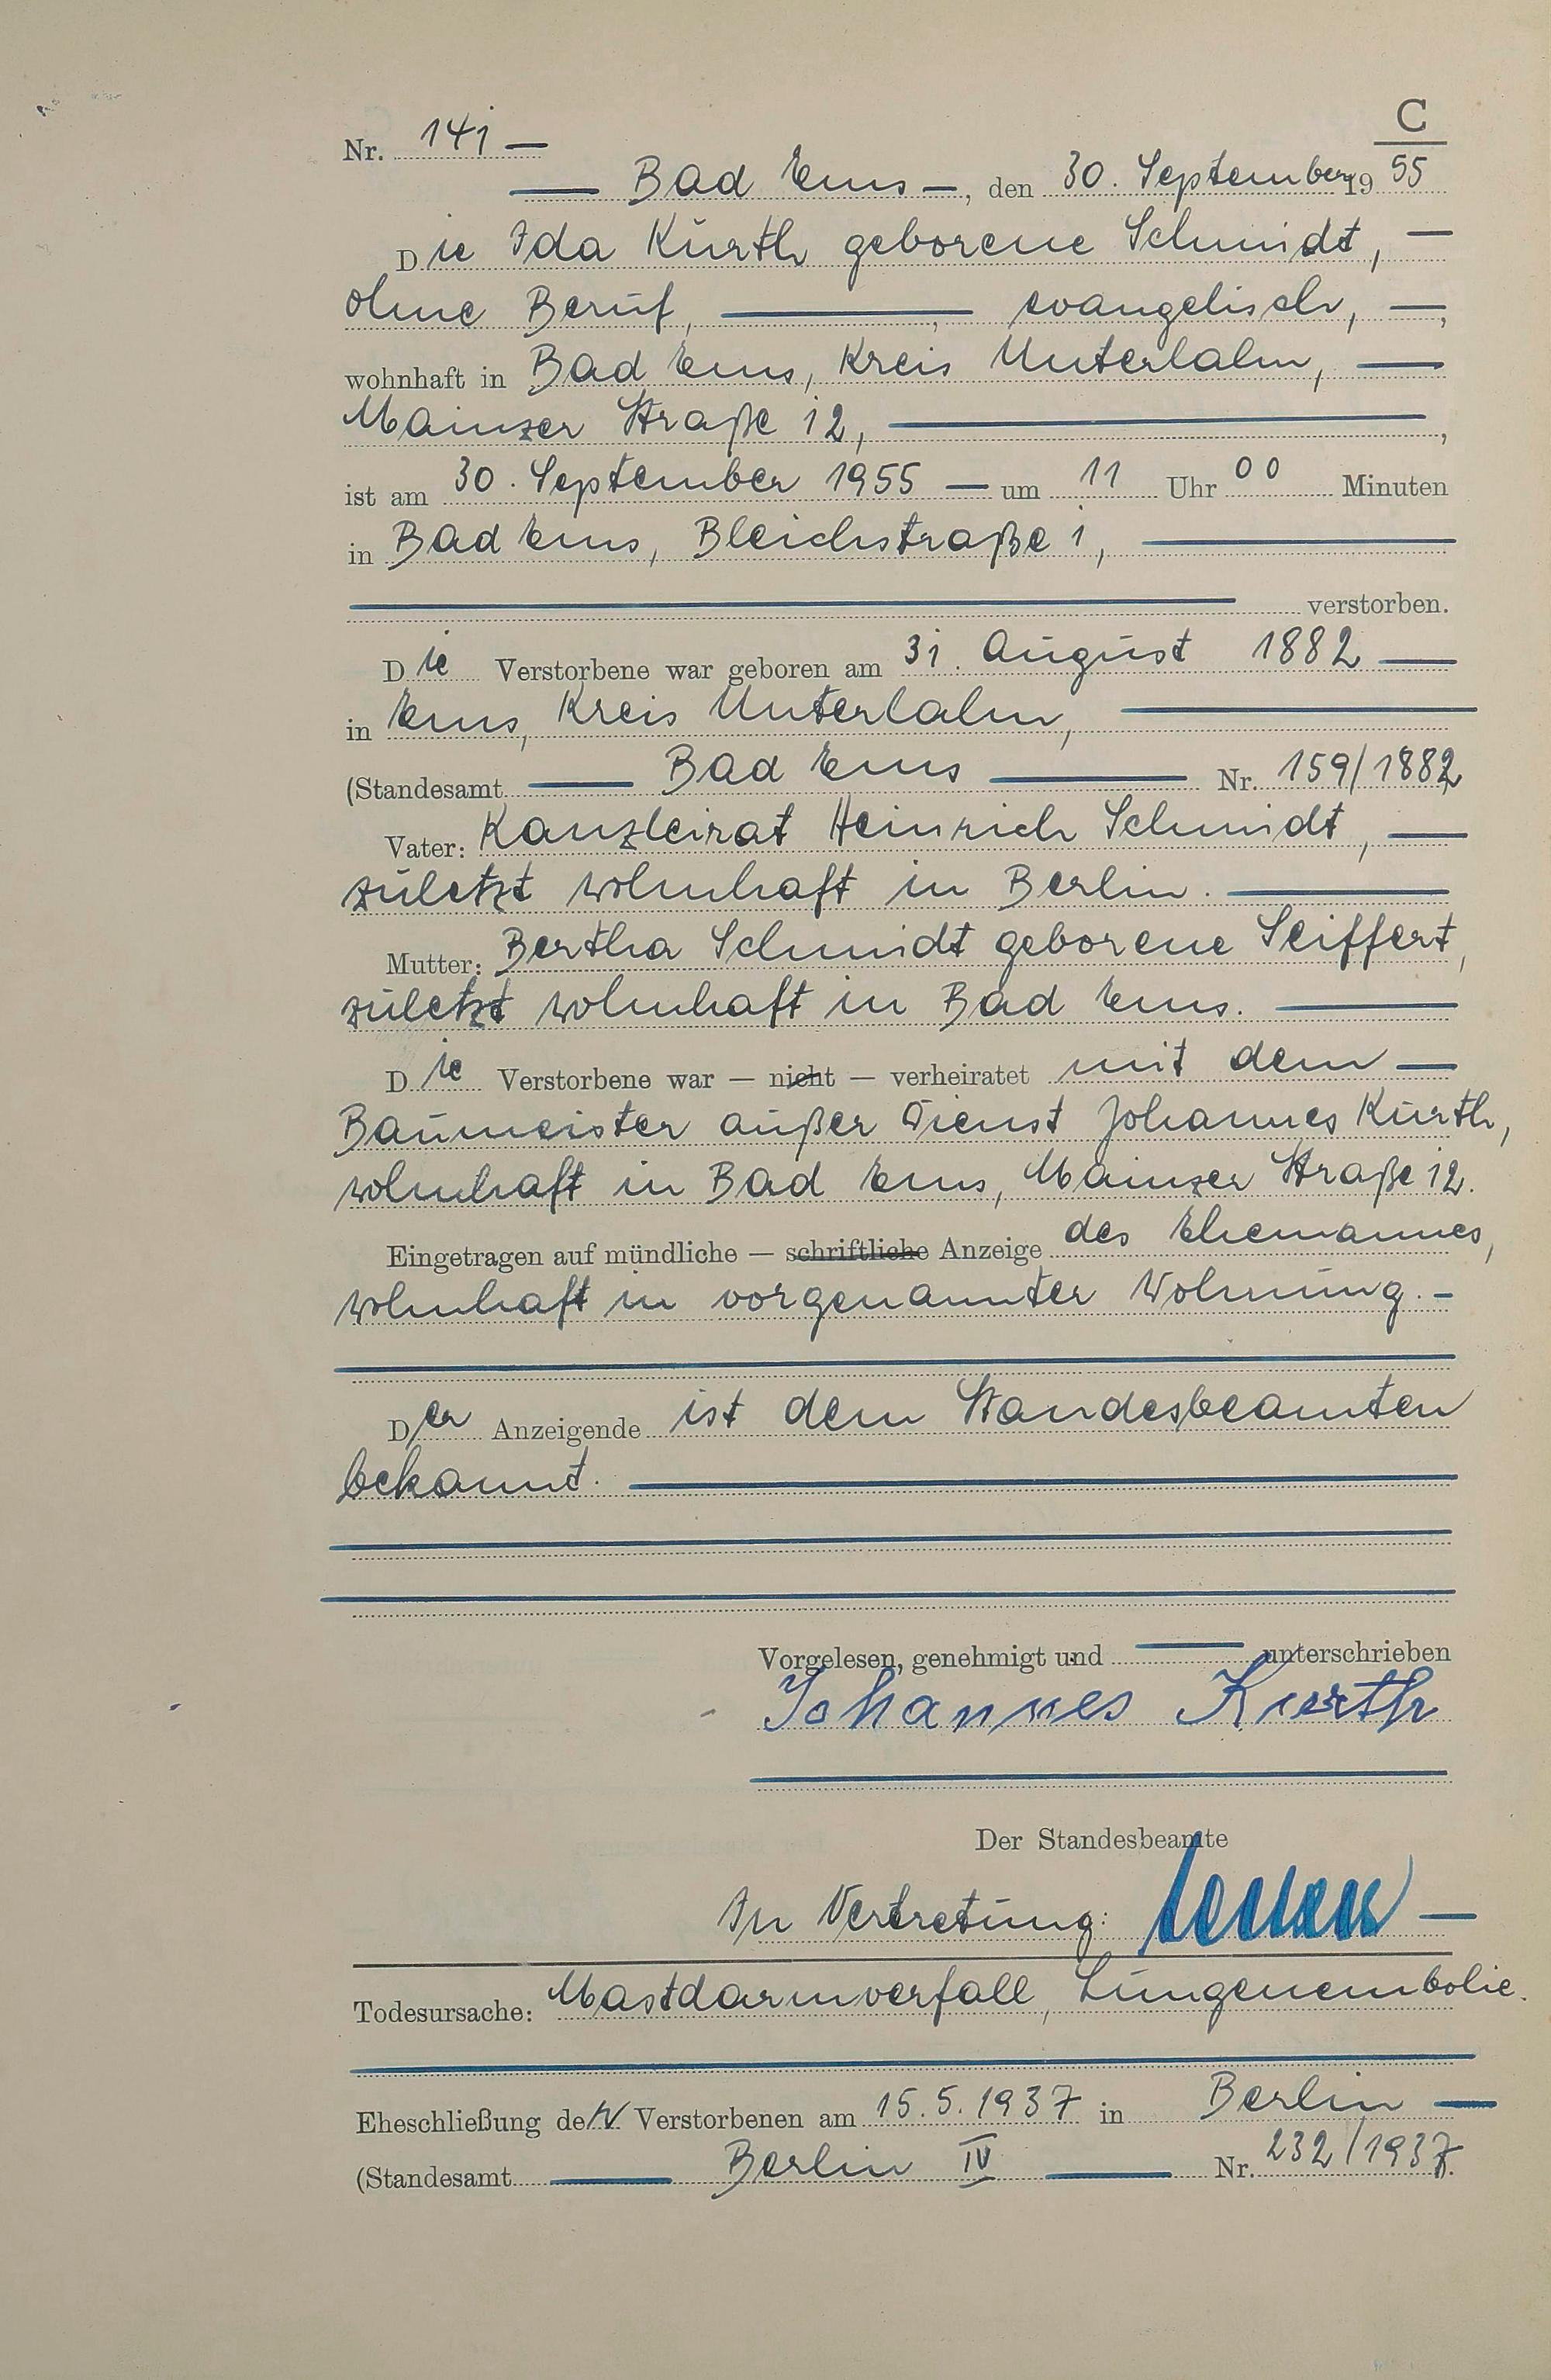 C
Nr. 141 —
— Bad Ems —, den 30. September 1955
Die Ida Kurth geborene Schmidt, —
ohne Beruf, —, — evangelisch, —,
wohnhaft in Bad Ems, Kreis Unterlahn, —
Mainzer Straße 12, —,
ist am 30. September 1955 — um 11 Uhr 00 Minuten
in Bad Ems, Bleichstraße 1, —
— verstorben.
Die Verstorbene war geboren am 31. August 1882 —
in Ems, Kreis Unterlahn, —
(Standesamt — Bad Ems — Nr. 159/1882
Vater: Kanzleirat Heinrich Schmidt, —
zuletzt wohnhaft in Berlin. —
Mutter: Bertha Schmidt geborene Seiffert,
zuletzt wohnhaft in Bad Ems. —
Die Verstorbene war — nicht — verheiratet mit dem —
Baumeister außer Dienst Johannes Kurth,
wohnhaft in Bad Ems, Mainzer Straße 12.
Eingetragen auf mündliche — schriftliche Anzeige des Ehemannes,
wohnhaft in vorgenannter Wohnung. —
Der Anzeigende ist dem Standesbeamten
bekannt. —
Vorgelesen, genehmigt und — unterschrieben
Johannes Kurth
Der Standesbeamte
In Vertretung: —
Todesursache: Mastdarmverfall, Lungenembolie.
Eheschließung der Verstorbenen am 15.5.1937 in Berlin —
(Standesamt — Berlin IV — Nr. 232/1937.